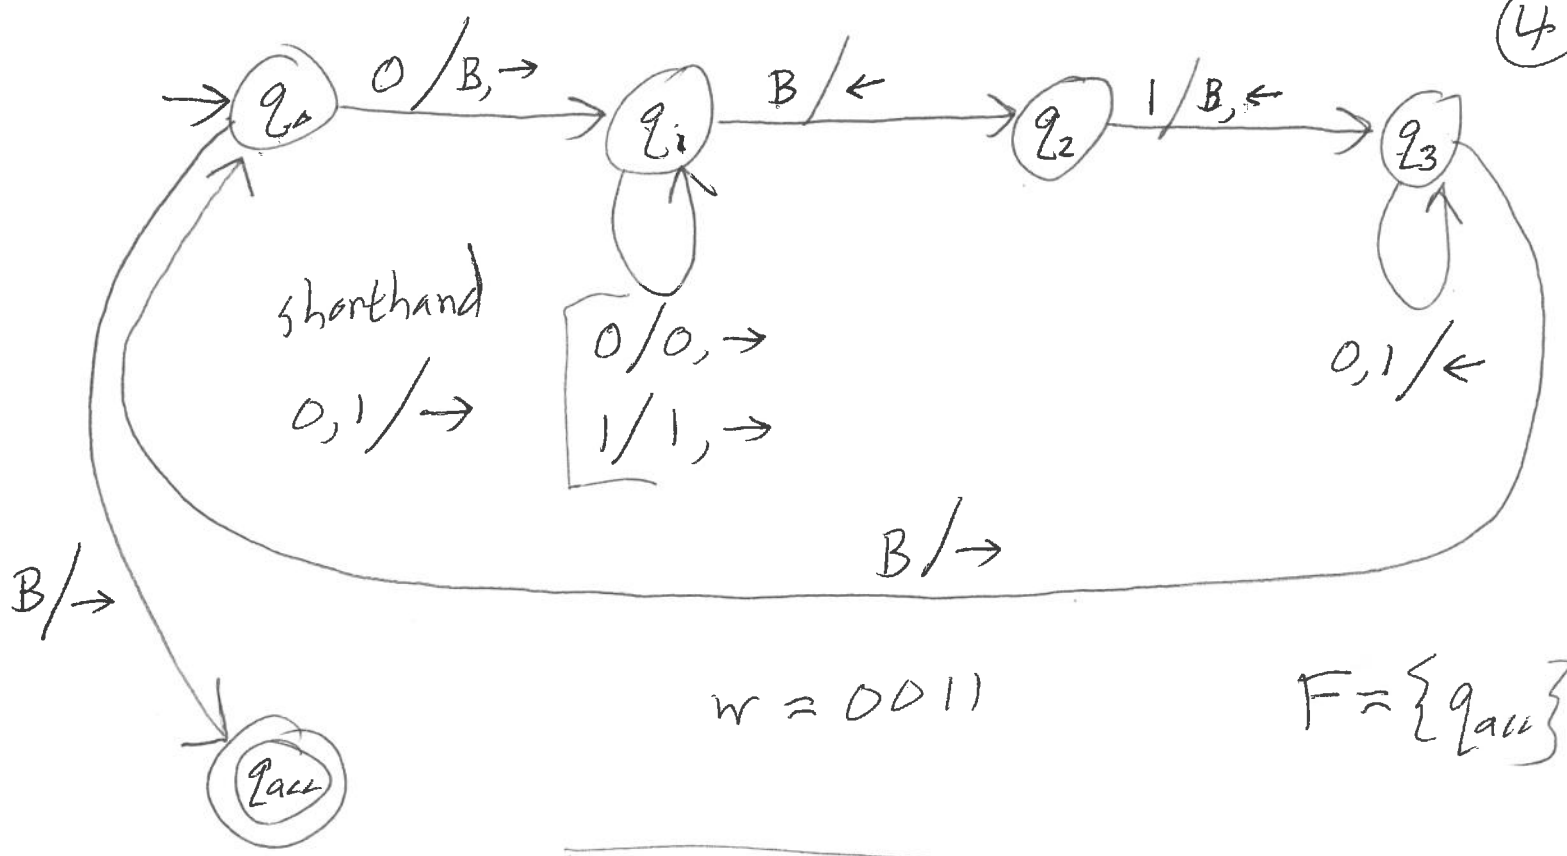 ④
q₀ 0/B,→ q₁ B/← q₂ 1/B,← q₃
shorthand
0,1/→
0/0,→
1/1,→
0,1/←
B/→
B/→
w = 0011
F = {q_acc}
q_acc